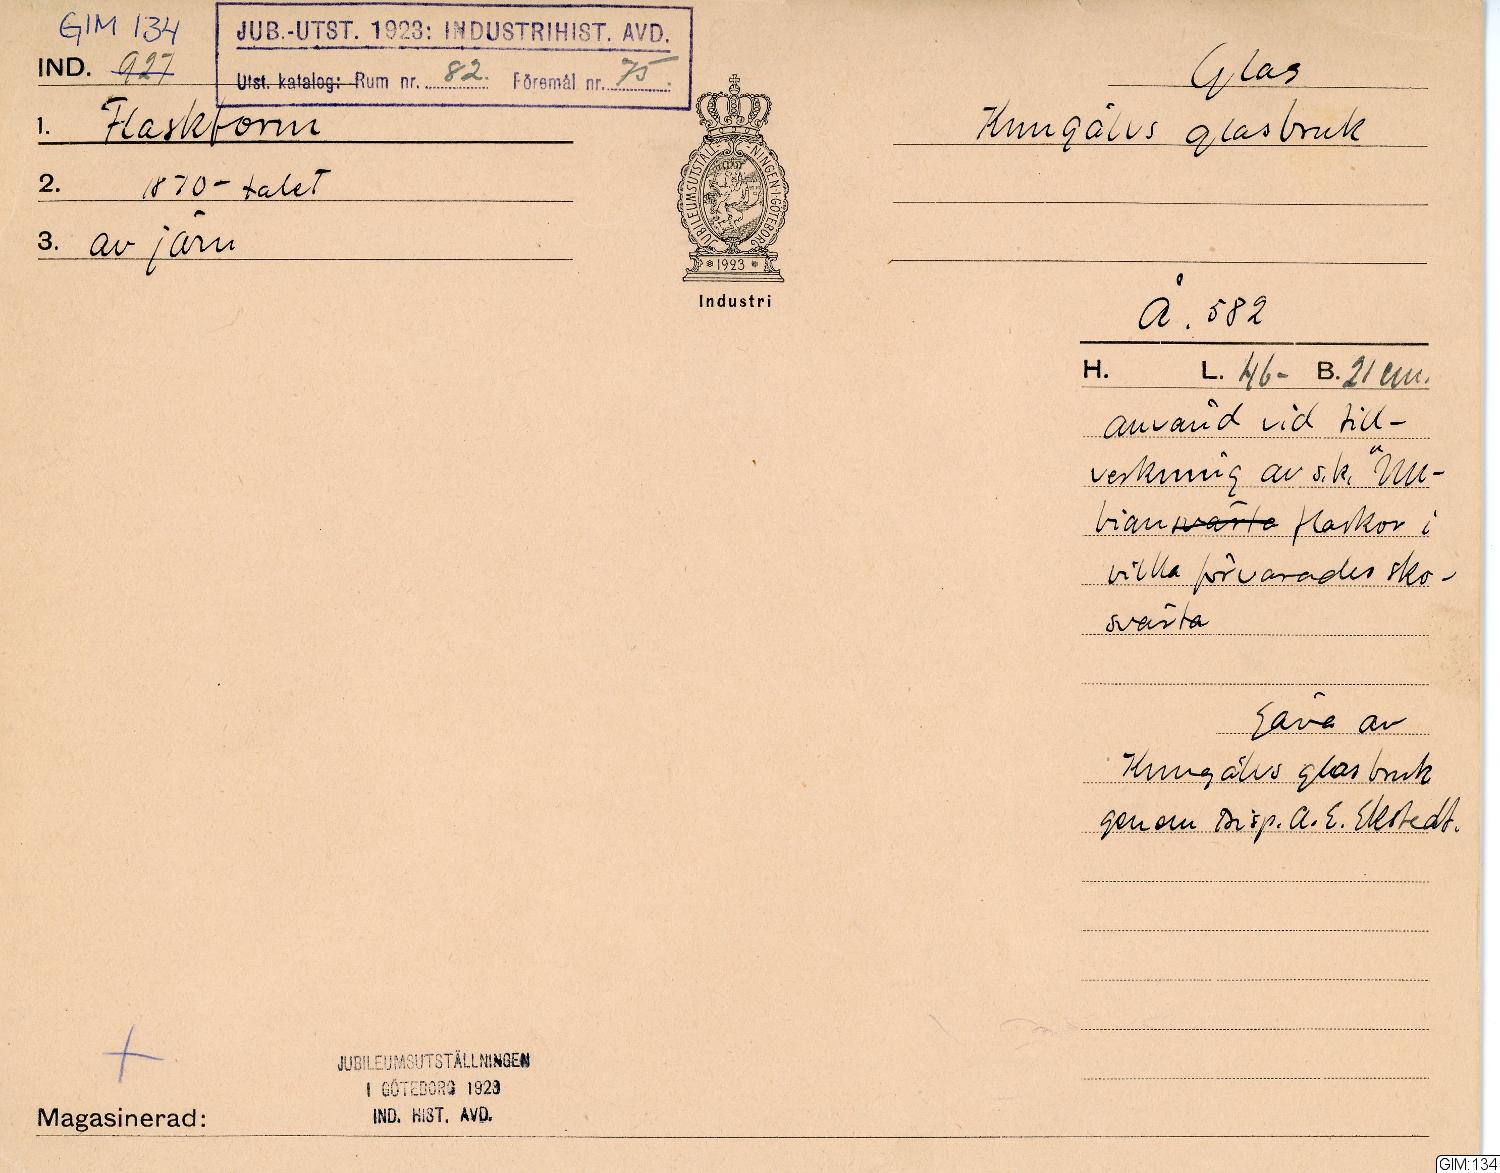 GIM 134
JUB.-UTST. 1923: INDUSTRIHIST. AVD.
IND. 927
Utst. katalog: Rum nr. 82. Föremål nr. 75.
Glas
1. Flaskform
Kungälvs glasbruk
2. 1870-talet
3. av järn
JUBILEUMSUTSTÄLLNINGEN I GÖTEBORG
1923
Industri
Å. 582
H. L. 46- B. 21 cm.
använd vid till-
verkning av s.k. "Nu-
bian svärta flaskor i
vilka förvarades sko-
svärta
Gåva av
Kungälvs glasbruk
genom Disp. A. E. Ekstedt.
JUBILEUMSUTSTÄLLNINGEN
I GÖTEBORG 1923
IND. HIST. AVD.
Magasinerad:
GIM:134